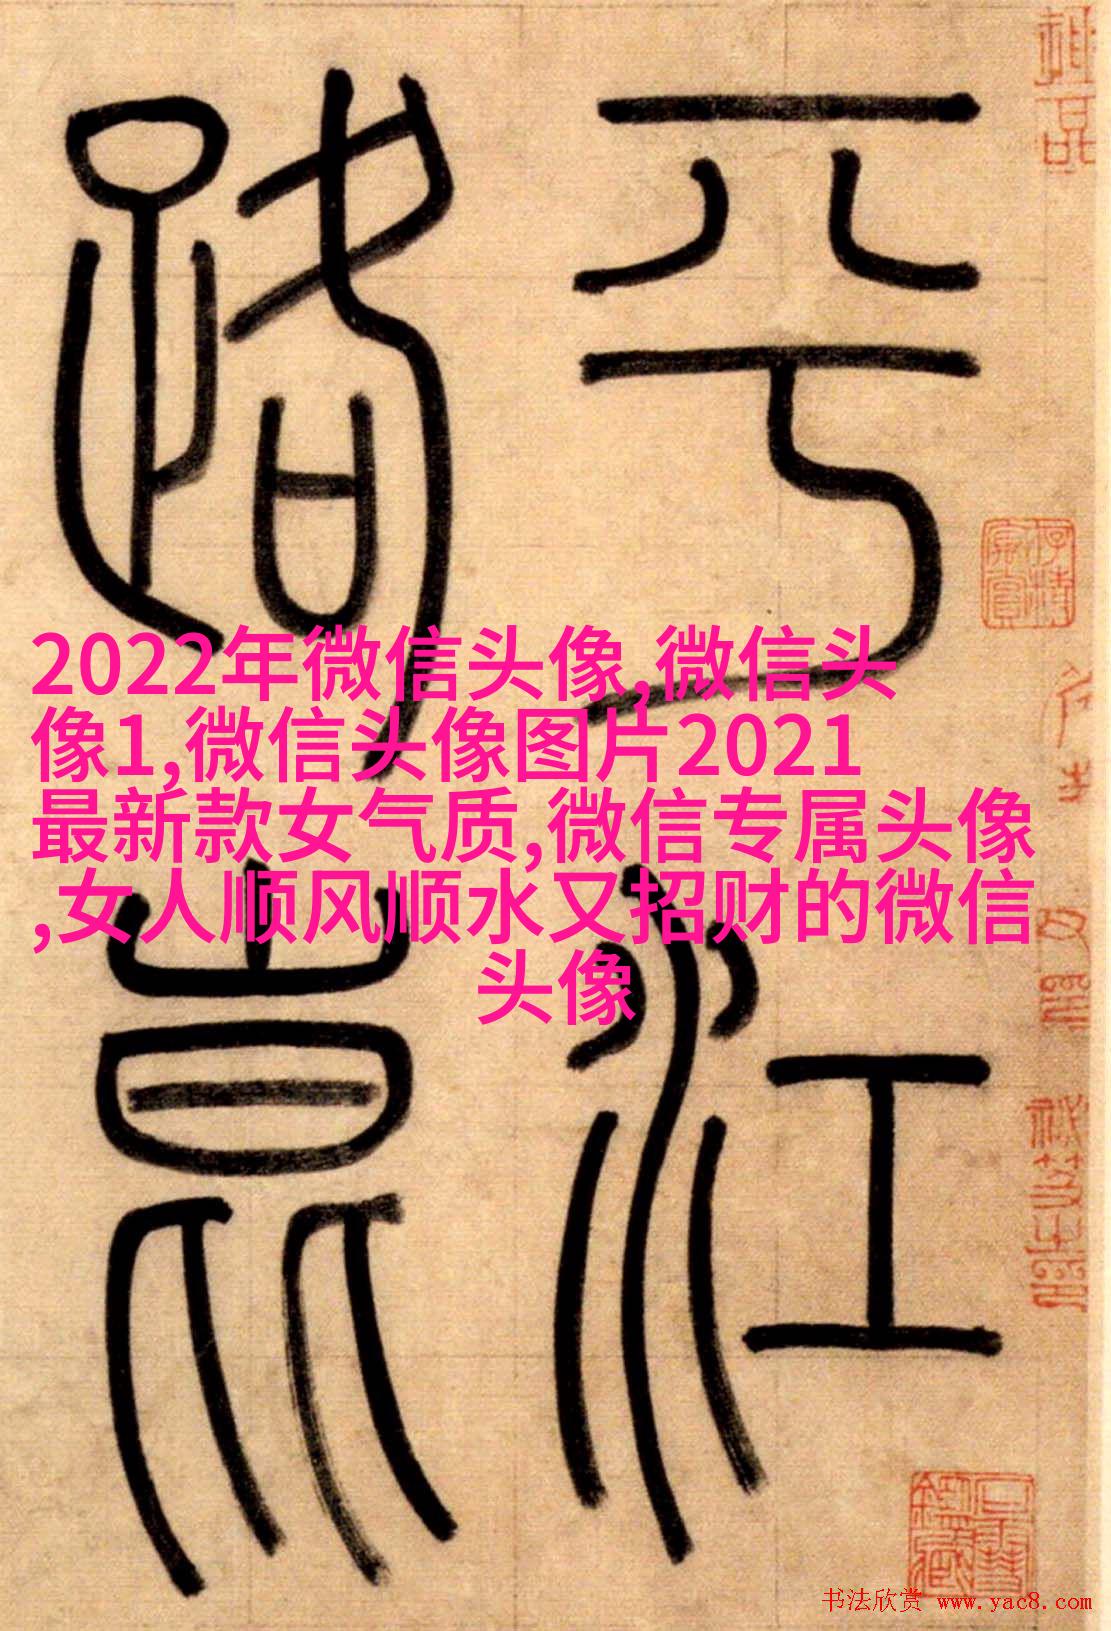 平江
路崑
2022年微信头像,微信头
像1,微信头像图片2021
最新款女气质,微信专属头像
,女人顺风顺水又招财的微信
头像
书法欣赏 www.yac8.com